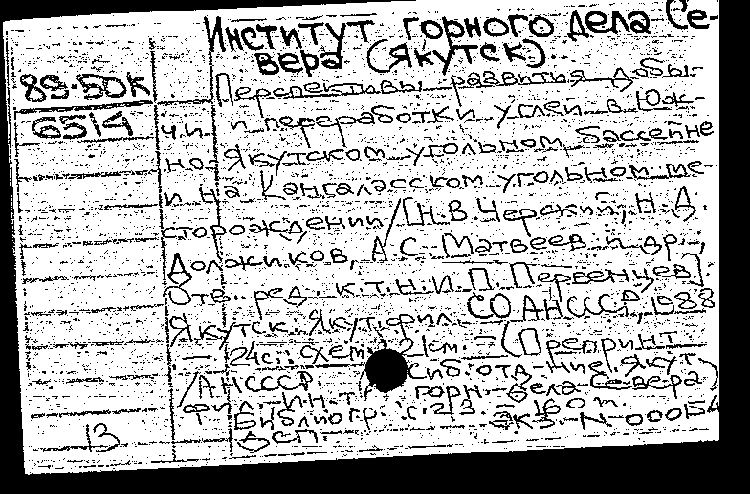 Институт горного дела Се-
вера (Якутск).
88-50К
6514
Перспективы развития добы-
чи и переработки углей в Юж-
но-Якутском угольном бассейне
и на Кангаласском угольном ме-
сторождении/[Н.В.Черский, Н.Д.
Должиков, А.С.Матвеев и др.;
Отв. ред. к.т.н. И.П.Первенцев].
Якутск: Якут.фил. СО АНСССР, 1988
— 24с.: схем; 21см. — (Препринт
/АНСССР, Сиб.отд-ние. Якут.
фил. ин-т горн. дела Севера)
Библиогр.: с.23. — 160 т.
ЭКЗ. N-00015
13